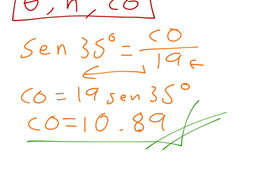 θ, h, co
Sen 35° = CO / 19
CO = 19 sen 35°
CO = 10.89